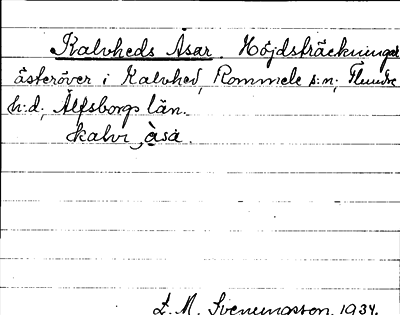 Kalvheds Åsar. Höjdsträckningar
österöver i Kalvhed, Rommele s:n, Flundre
h:d, Älfsborgs län.
kalvi_åsa
L. M. Svenungsson. 1934.